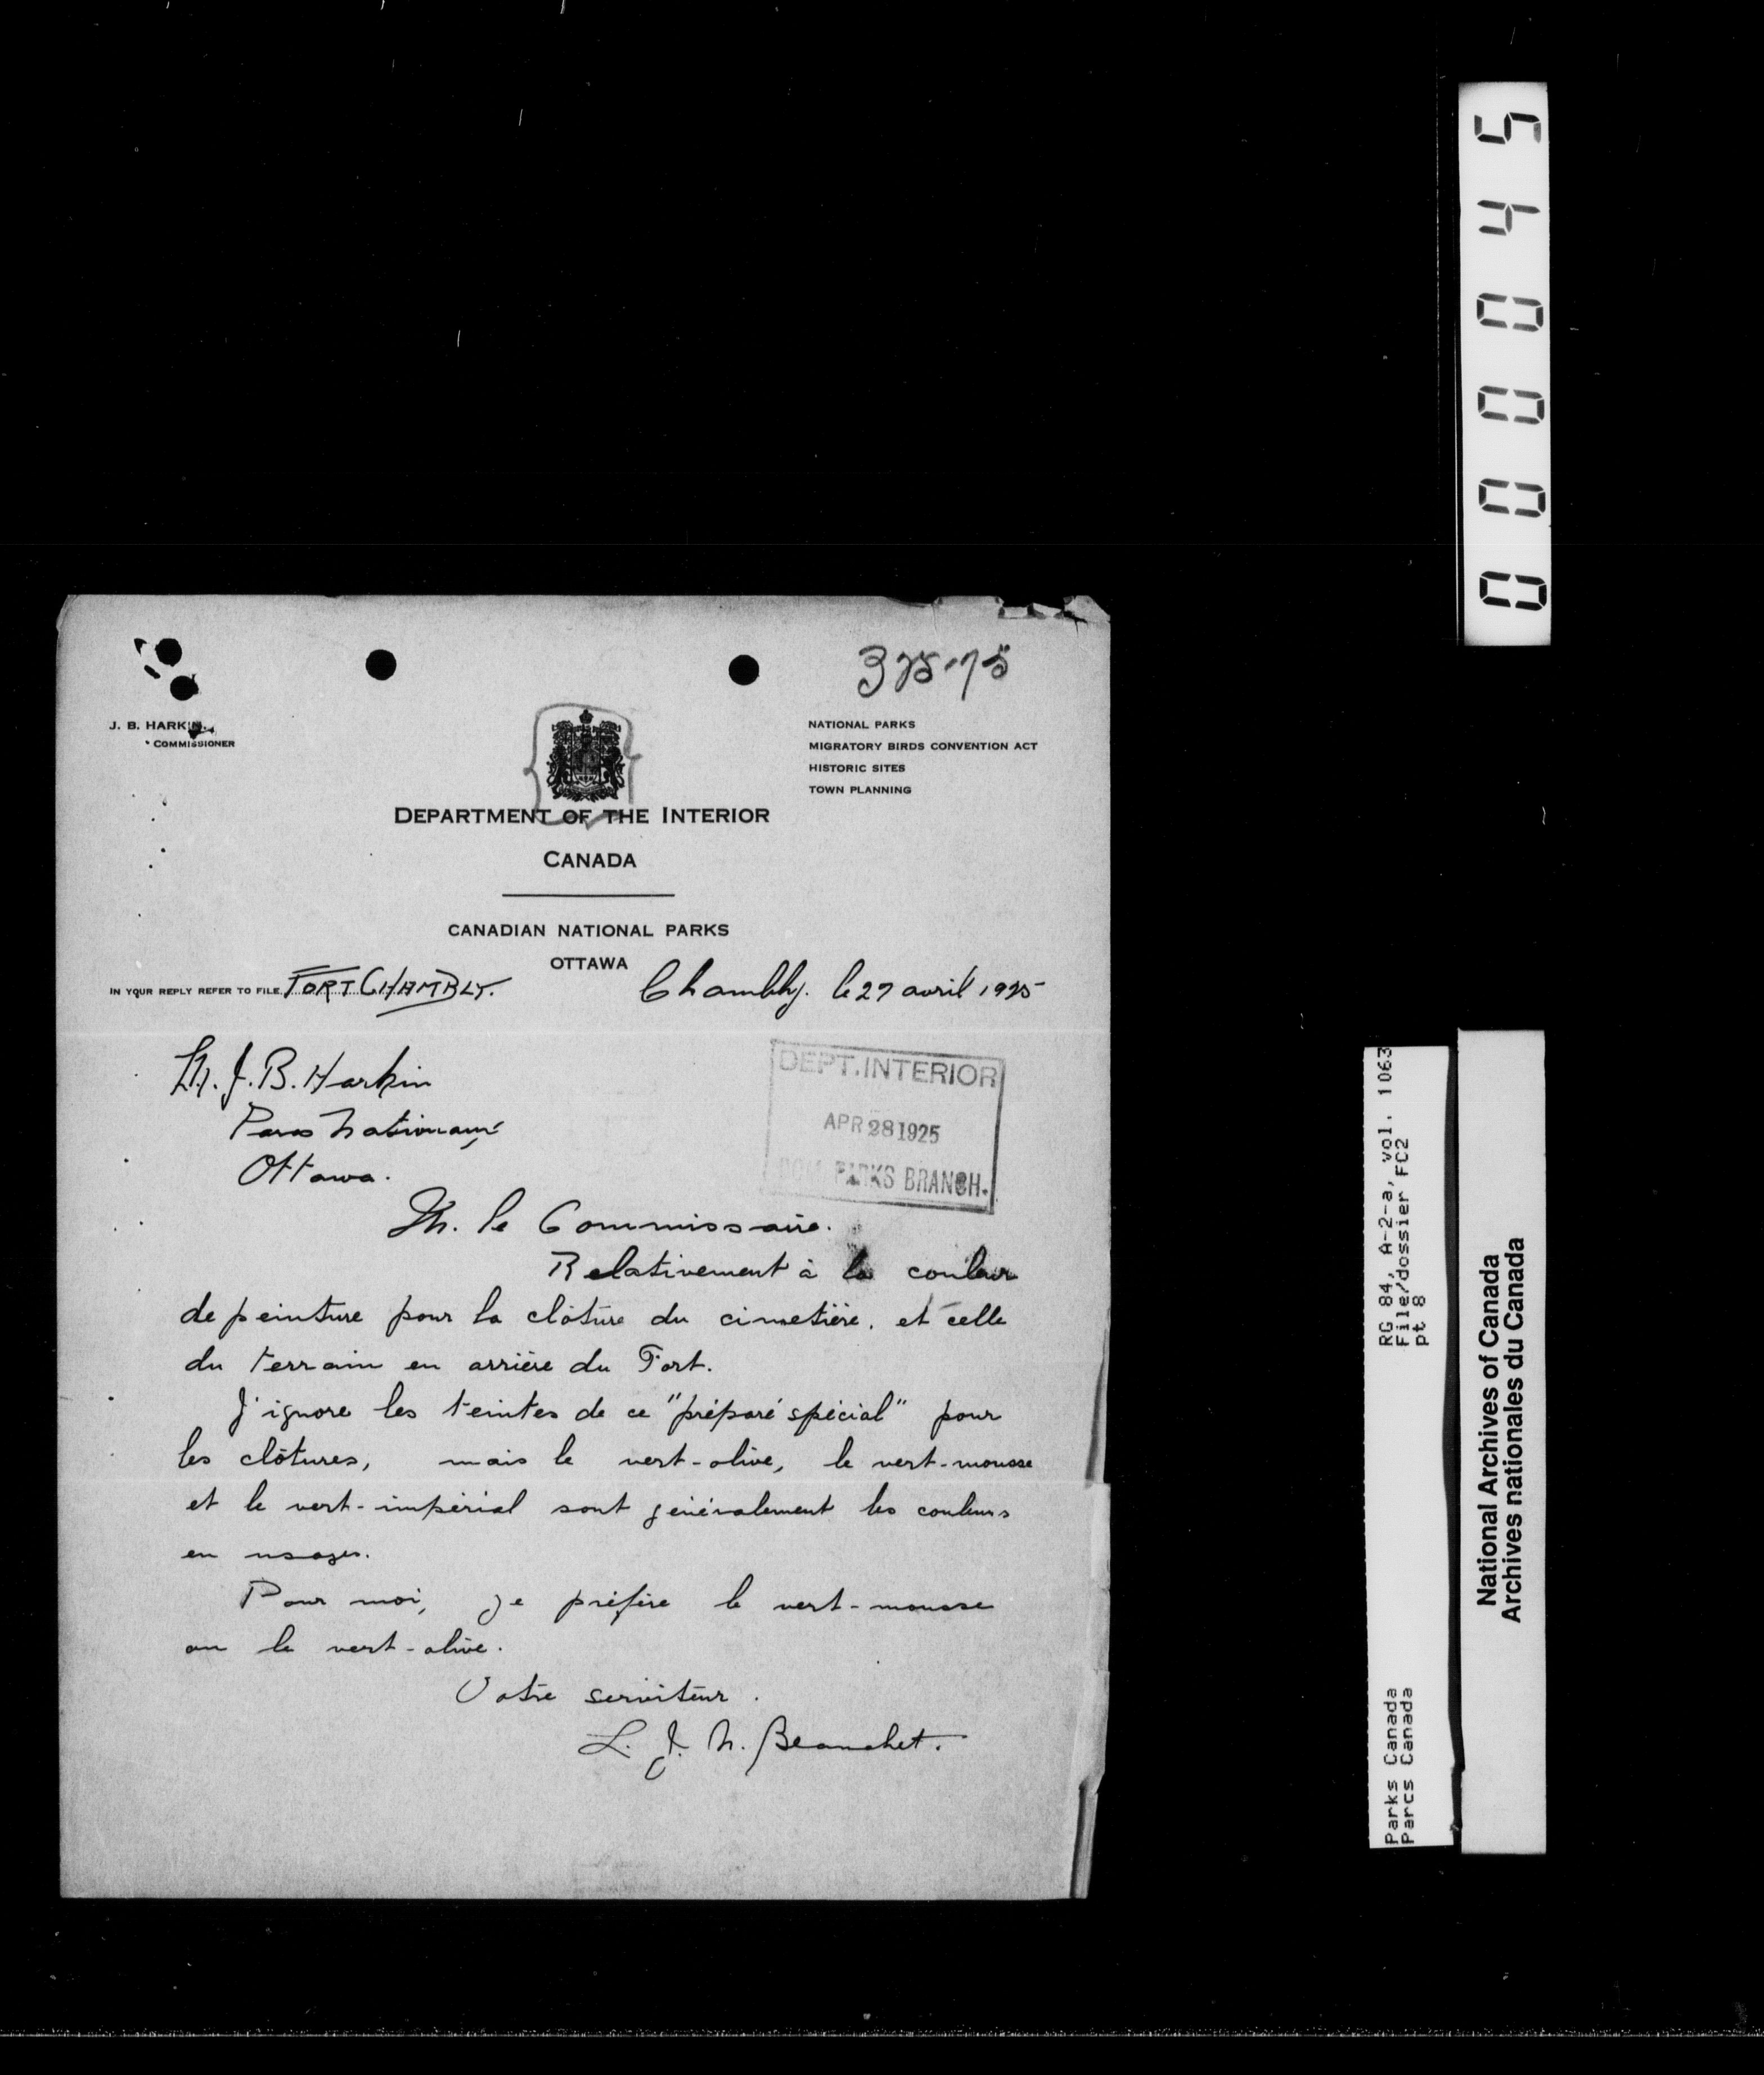 375-75
J. B. HARKIN,
COMMISSIONER
NATIONAL PARKS
MIGRATORY BIRDS CONVENTION ACT
HISTORIC SITES
TOWN PLANNING
DEPARTMENT OF THE INTERIOR
CANADA
CANADIAN NATIONAL PARKS
OTTAWA
IN YOUR REPLY REFER TO FILE FORT CHAMBLY.
Chambly. le 27 avril 1925
M. J. B. Harkin
Parcs Nationaux
Ottawa.
DEPT. INTERIOR
APR 28 1925
DOM PARKS BRANCH.
M. le Commissaire.
Relativement à la couleur
de peinture pour la clôture du cimetière. et celle
du terrain en arrière du Fort.
J'ignore les teintes de ce "préparé spécial" pour
les clôtures, mais le vert-olive, le vert-mousse
et le vert-impérial sont généralement les couleurs
en usages.
Pour moi, je préfère le vert-mousse
ou le vert-olive.
Votre serviteur.
L. J. N. Blanchet.
000045
RG 84, A-2-a, vol. 1063
File/dossier FC2
pt 8
Parks Canada
Parcs Canada
National Archives of Canada
Archives nationales du Canada